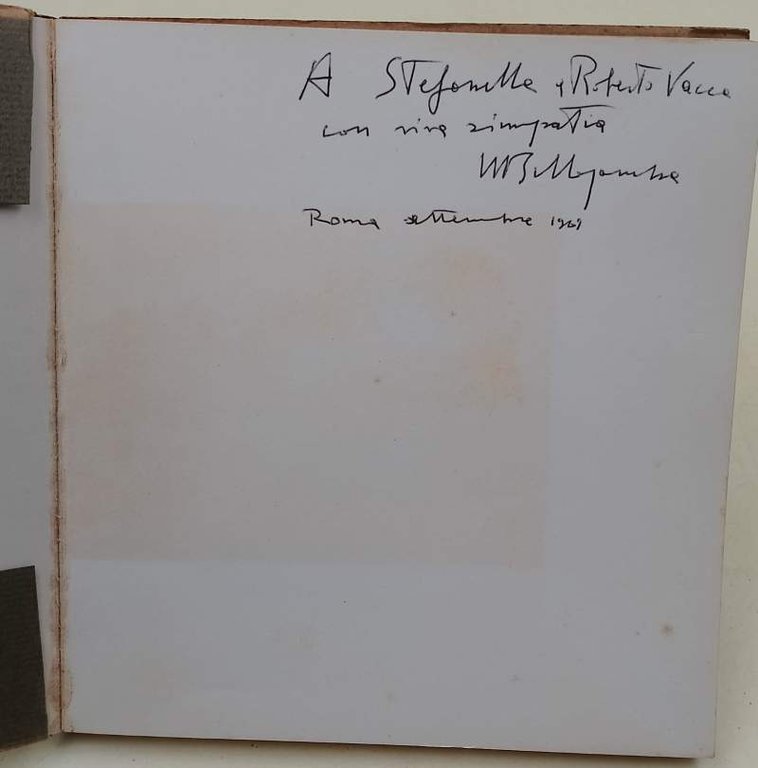 A Stefanella e Roberto Vacca
con viva simpatia
Roma settembre 1969